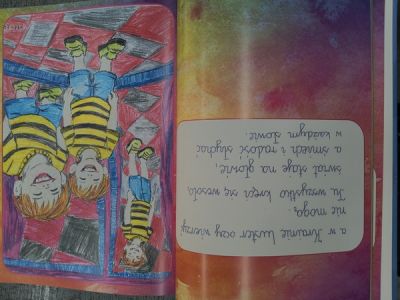 a w Krainie luster oczy wierzyć
nie mogą.
Tu wszystko kręci się wesoło
świat staje na głowie,
a śmiech i radość słychać
w każdym słowie.